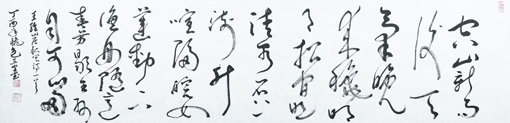 空山新雨
後天
氣晚
来秋明
月松間照
清泉石上
流竹
喧歸浣女
蓮動下
漁舟隨意
春芳歇王孫
自可留
王維山居秋暝詩一首
丁酉年